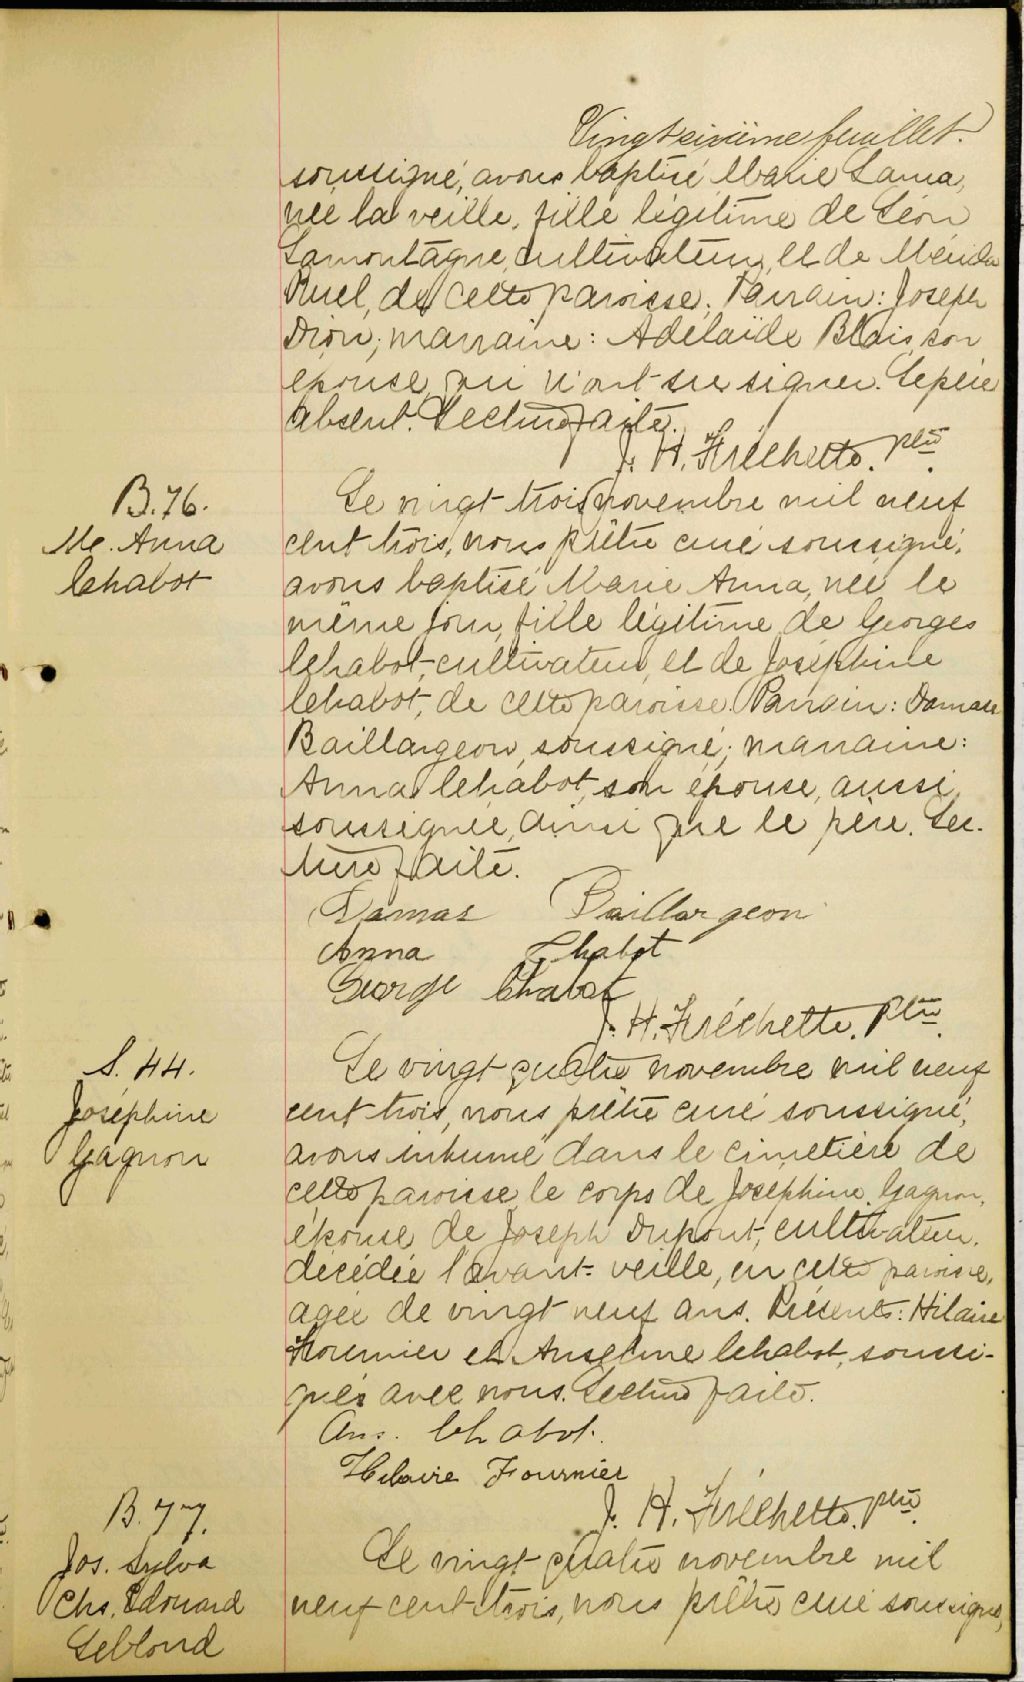 Vingt sixième feuillet.
soussigné, avons baptisé Marie Lama,
née la veille, fille légitime de Léon
Lamontagne, cultivateur, et de Mérida
Ruel, de cette paroisse. Parrain: Joseph
Dion; marraine: Adélaïde Blais, son
épouse, qui n'ont su signer. Le père
absent. Lecture faite.
J. H. Fréchette. Ptre.
B. 76.
Me. Anna
Chabot
Le vingt trois novembre mil neuf
cent trois, nous prêtre curé soussigné,
avons baptisé Marie Anna, née le
même jour, fille légitime de Georges
Chabot, cultivateur, et de Joséphine
Chabot, de cette paroisse. Parrain: Damase
Baillargeon, soussigné; marraine:
Anna Chabot, son épouse, aussi
soussignée, ainsi que le père. Lec-
ture faite.
Damas Baillargeon
Anna Chabot
George Chabot
J. H. Fréchette. Ptre.
S. 44.
Joséphine
Gagnon
Le vingt quatre novembre mil neuf
cent trois, nous prêtre curé soussigné,
avons inhumé dans le cimetière de
cette paroisse le corps de Joséphine Gagnon,
épouse de Joseph Dupont, cultivateur,
décédée l'avant-veille, en cette paroisse,
agée de vingt neuf ans. Présents: Hilaire
Fournier et Anselme Chabot, soussi-
gnés avec nous. Lecture faite.
Ans. Chabot.
Hilaire Fournier
J. H. Fréchette. Ptre.
B. 77.
Jos. Sylva
Chs. Edouard
Leblond
Le vingt quatre novembre mil
neuf cent trois, nous prêtre curé soussigné,